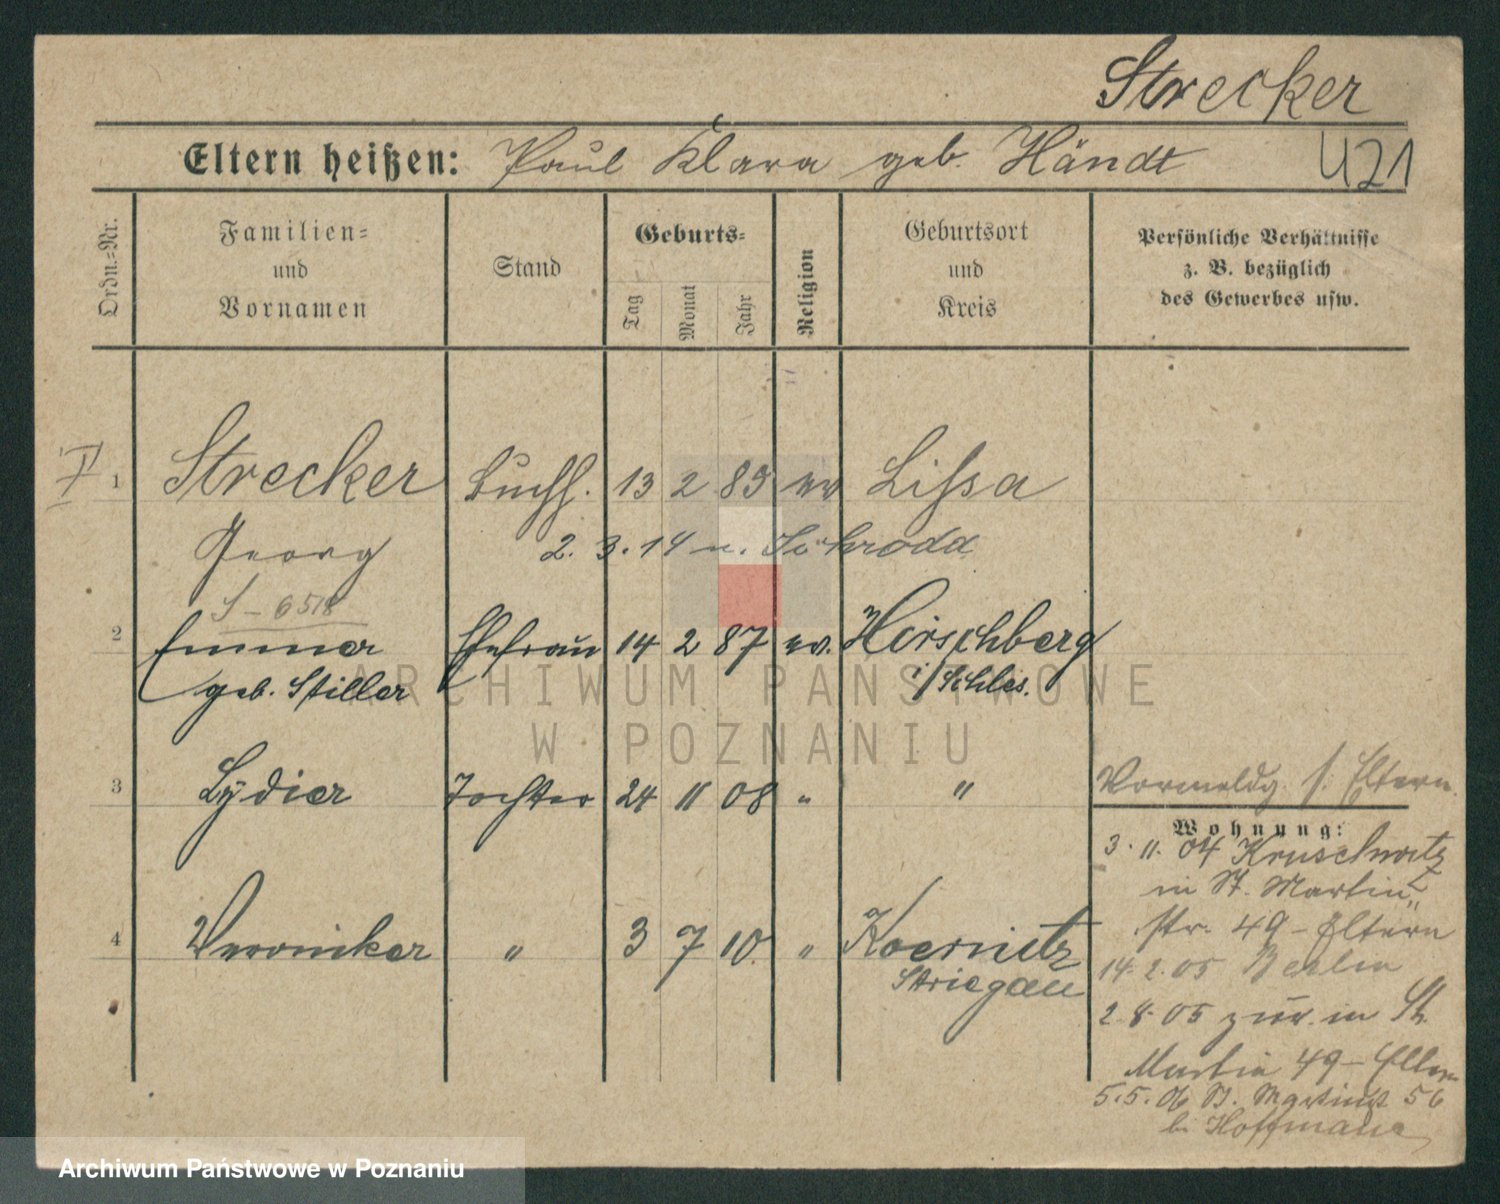 Strecker
Eltern heißen: Paul Klara geb. Händt
421
Ordn.-Nr.
Familien-
und
Vornamen
Stand
Geburts-
Tag
Monat
Jahr
Religion
Geburtsort
und
Kreis
Persönliche Verhältnisse
z. B. bezüglich
des Gewerbes usw.
1 Strecker Buchh. 13 2 85 ev Lissa
Georg 2. 3. 14 n. Schroda
S-6518
2 Emma Ehefrau 14 2 87 ev. Hirschberg
geb. Stiller i/Schles.
3 Lydia Tochter 24 11 08 " "
4 Veronika " 3 7 10. " Koernitz
Striegau
Vormeldg. s. Eltern
Wohnung:
3. 11. 04 Kruschwitz
in St. Martin
str. 49 - Eltern
14. 2. 05 Berlin
2. 8. 05 zur. in St.
Martin 49 - Eltern
5. 5. 06 St. Martinst 56
bei Hoffmann
ARCHIWUM PAŃSTWOWE
W POZNANIU
Archiwum Państwowe w Poznaniu